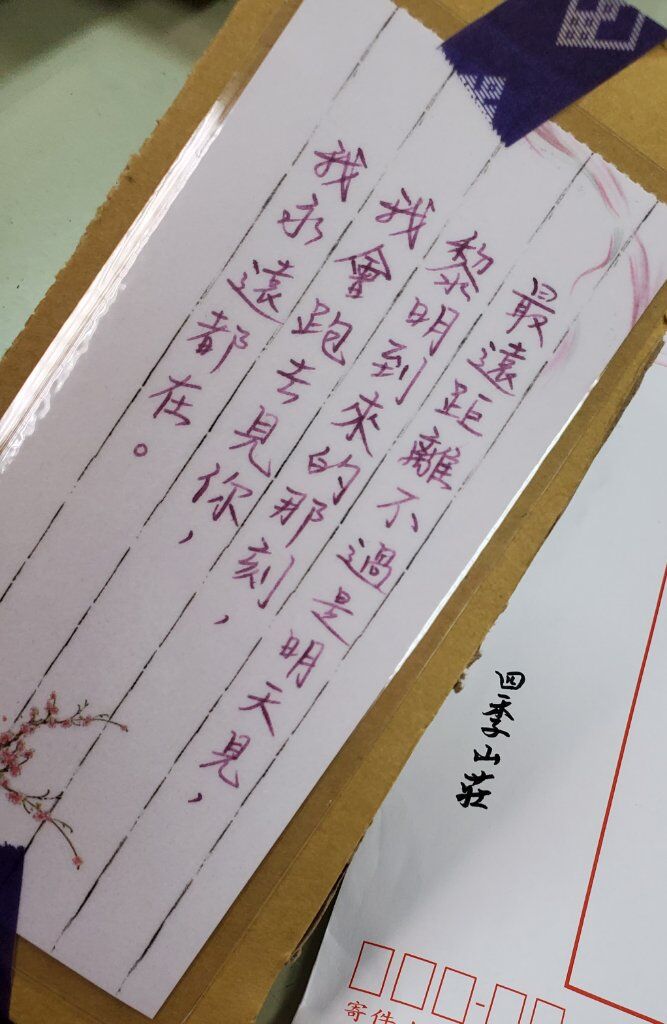 最遠距離不過是明天見，
黎明到來的那刻，
我會跑去見你，
我永遠都在。
四季山莊
寄件